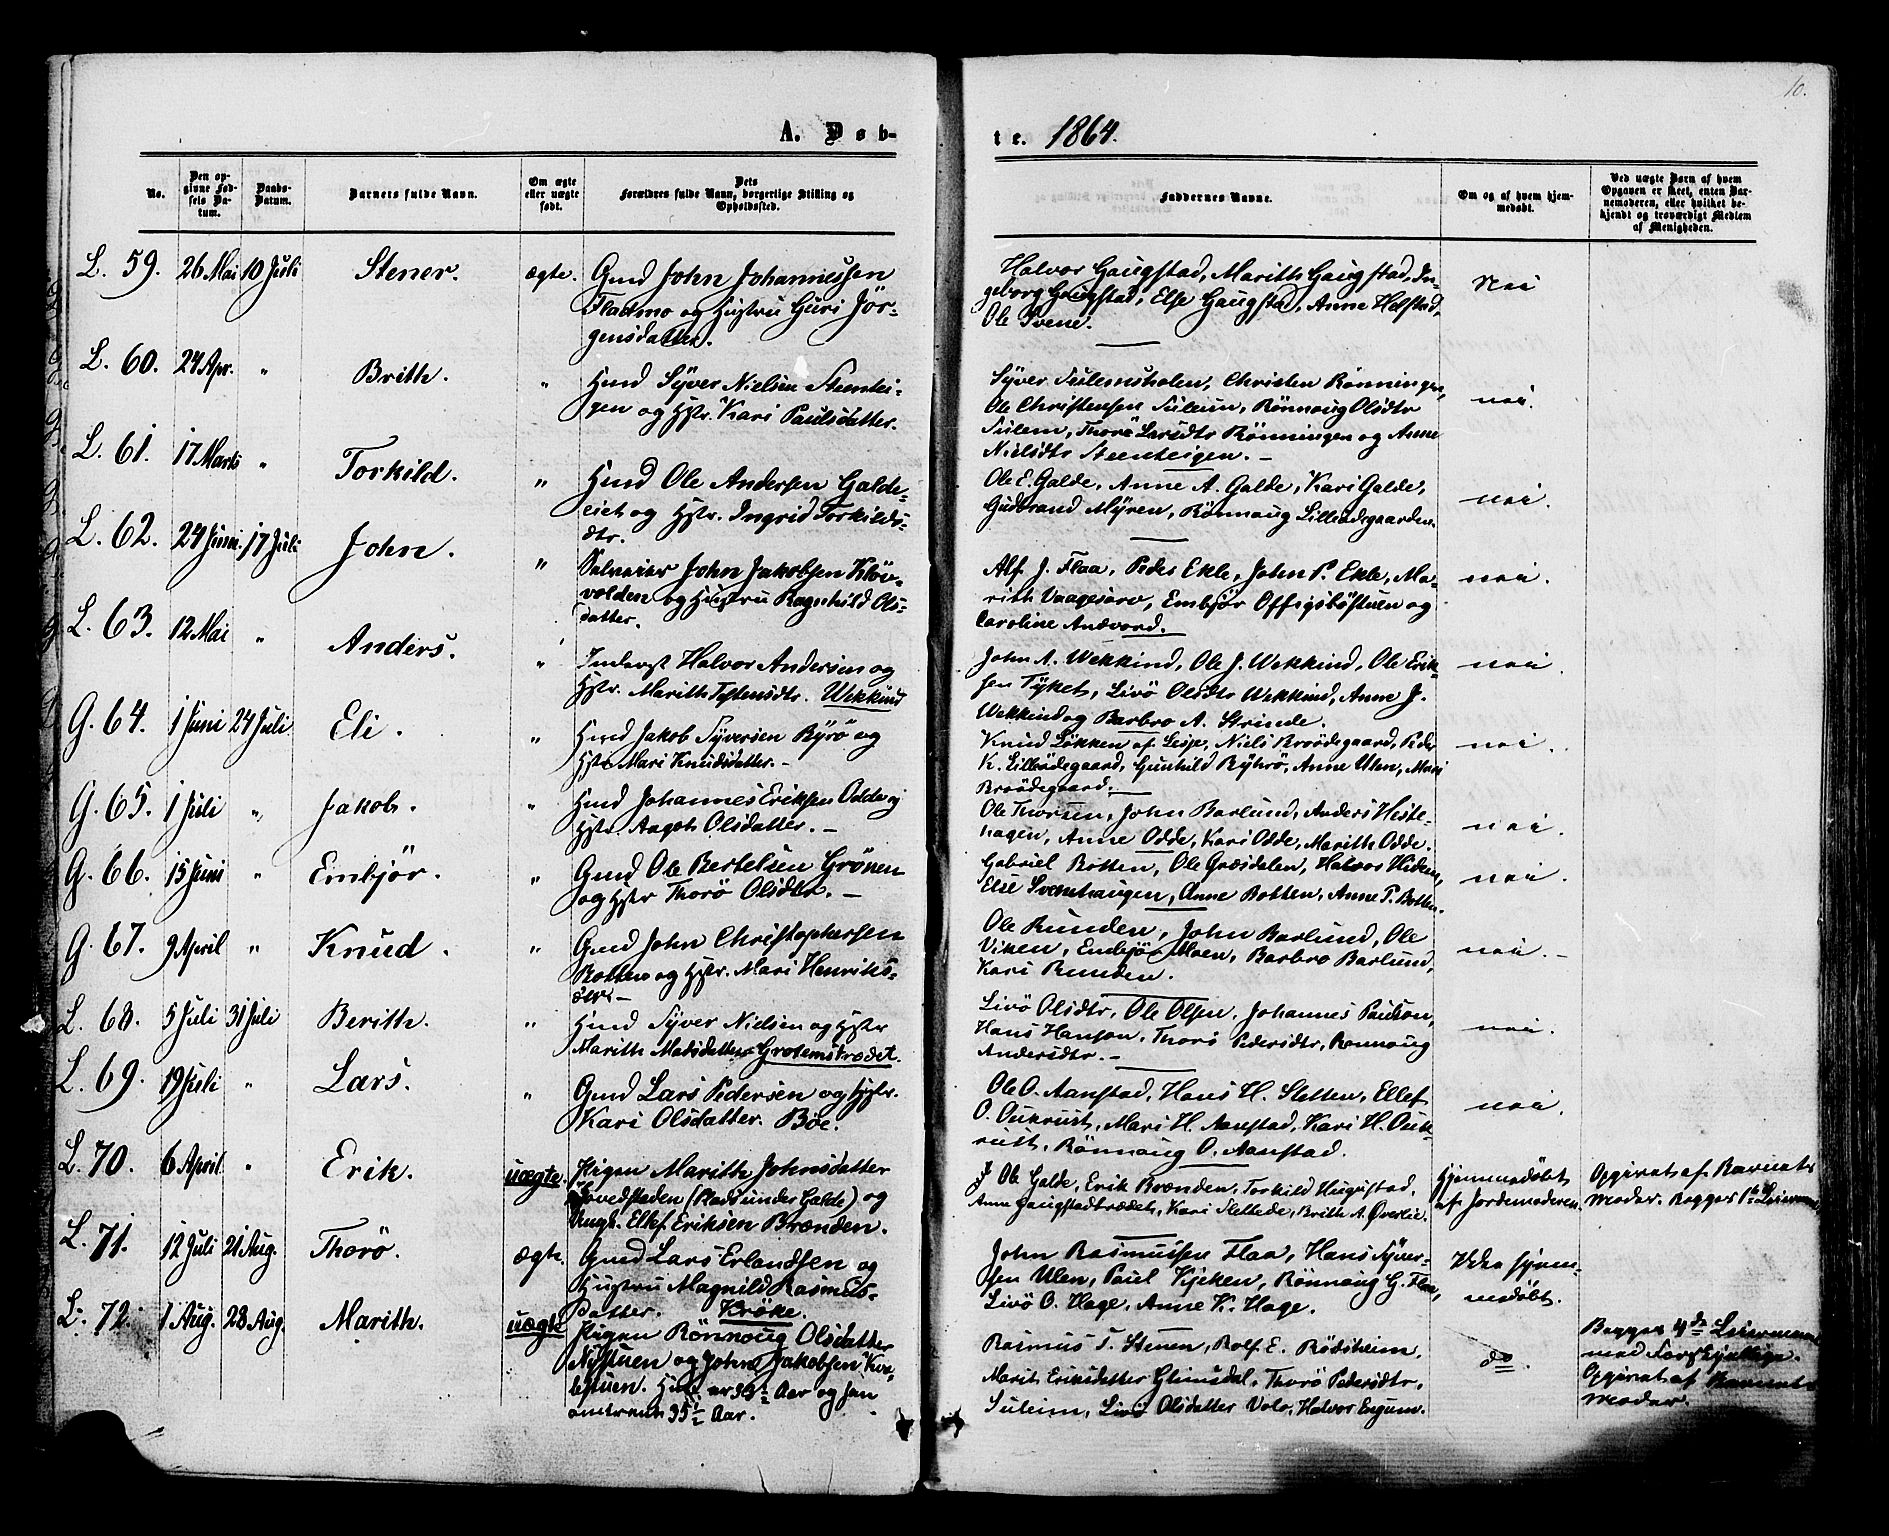 10.
A. Døb-
te. 1864.
No.
Den op-
givne Fød-
sels Da-
tum.
Daabs-
Datum.
Barnets fulde Navn.
Om ægte
eller uægte
født.
Dets
Forældres fulde Navn, borgerlige Stilling og
Opholdssted.
Faddernes Navne.
Om og af hvem hjem-
medøbt.
Ved uægte Børn af hvem
Opgaven er skeet, enten Bar-
nemoderen, eller hvilket be-
kjendt og troværdigt Medlem
af Menigheden.
L. 59. 26 Mai 10 Juli Stener. ægte. Gmd John Johannessen
Fladmo og Hustru Guri Jör-
gensdatter.
Halvor Gaugstad, Marith Gaugstad, In-
geborg Gaugstad, Else Gaugstad, Anne Holstad,
Ole Svene.
Nei
L. 60. 24 Apr. " Brith. " Hmd Syver Nielsen Steentei-
gen og Hstr. Kari Paulsdatter.
Syver Sulemsholen, Christen Rönningen,
Ole Christensen Suleim, Rönnoug Olsdtr
Sulem, Thorö Larsdtr Rönningen og Anne
Nielsdtr Steenteigen. –
nei.
L. 61. 17 Marts " Torkild. " Hmd Ole Andersen Galde-
eiet og Hstr. Ingrid Torkilds-
dtr.
Ole E. Galde, Anne A. Galde, Kari Galde,
Gudbrand Myren, Rönnoug Lilleödegaarden.
nei.
L. 62. 24 Juni 17 Juli John. " Selveier John Jakobsen Klöv-
volden og Hustru Ragnhild Ols-
datter.
Alf J. Flaa, Peder Ekle, John P. Ekle, Ma-
rith Vaagesaro, Embjör Offigsböstuen og
Caroline Andvord.
nei.
L. 63. 12 Mai " Anders. " Inderst Halvor Andersen og
Hstr. Marith Testensdtr. Wekkind
John A. Wekkind, Ole J. Wekkind, Ole Erik-
sen Tyket, Livö Olsdtr Wekkind, Anne J.
Wekkind og Barbro A. Strinde.
nei.
G. 64. 1 Juni 24 Juli Eli. " Hmd Jakob Syversen Ryrö og
Hstr Mari Knudsdatter. –
Knud Lökken af Lesje, Niels Broödegaard, Peder
K. Lilleödegaard, Gunhild Ryhrö, Anne Ulen, Mari
Broödegaard.
nei.
G. 65. 1 Juli " Jakob. " Hmd Johannes Eriksen Odde og
Hstr. Aagot Olsdatter. –
Ole Thorsen, John Barlund, Anders Heste-
hagen, Anne Odde, Kari Odde, Marith Odde.
nei.
G. 66. 15 Juni " Embjör. " Gmd Ole Bertelsen Grönen
og Hstr Thorö Olsdtr. –
Gabriel Botten, Ole Græsdalen, Halvor Hidem,
Else Svenshaugen, Anne Botten, Anne P. Botten.
nei.
G. 67. 9 April " Knud. " Gmd John Christophersen
Botten og Hstr. Mari Henriks-
dtr. –
Ole Runden, John Barlund, Ole
Viken, Embjör Moen, Barbro Barlund,
Kari Runden.
nei. –
L. 68. 5 Juli 31 Juli Berith. " Hmd Syver Nielsen og Hstr
Marith Madsdatter Grotemstrædet.
Livö Olsdtr, Ole Olsen, Johannes Paulson,
Hans Hanson, Thorö Pedersdtr, Rönnoug
Andersdtr. –
nei.
L. 69. 19 Juli " Lars. " Gmd Lars Pedersen og Hstr.
Kari Olsdatter. Böe.
Ole O. Aanstad, Hans H. Sletten, Ellef
O. Oukrust, Mari H. Aanstad, Kari H. Ouk-
rust, Rönnoug O. Aanstad.
nei.
L. 70. 6 April " Erik. uægte. Pigen Marith Johnsdatter
Hovedstaden (Plads under Galde) og
Ungk. Ellef Eriksen Brænden.
Ole Galde, Erik Brænden, Torkild Hugustad,
Anne Gaugstadtrædet, Kari Slettede, Brith A. Øverlie.
Hjemmedøbt
af Jordemoderen.
Opgivet af Barnets
Moder. Begges 1ste Leiermaal
L. 71. 12 Juli 21 Aug. Thorö. ægte. Gmd Lars Erlandsen og
Hustru Magnild Rasmus-
datter. Kröke.
John Rasmussen Flaa, Hans Syver-
sen Ulen, Paul Kjeken, Rönnoug G. Flaa,
Livö O. Hage, Anne K. Hage.
Ikke hjem-
medøbt.
L. 72. 1 Aug. 28 Aug. Marith. uægte Pigen Rönnoug Olsdatter
Nystuen og John Jakobsen Kva-
lestuen. Hun er 33½ Aar og han
omtrent 35½ Aar.
Rasmus T. Stenen, Rolf E. Rödsheim,
Marit Eriksdatter Glimsdal, Thorö Pedersdtr,
Suleim, Livö Olsdatter Volo, Halvor Engum.
do.
Begges 4de Leiermaal
med Forskjellige.
Opgivet af Barnets
Moder.